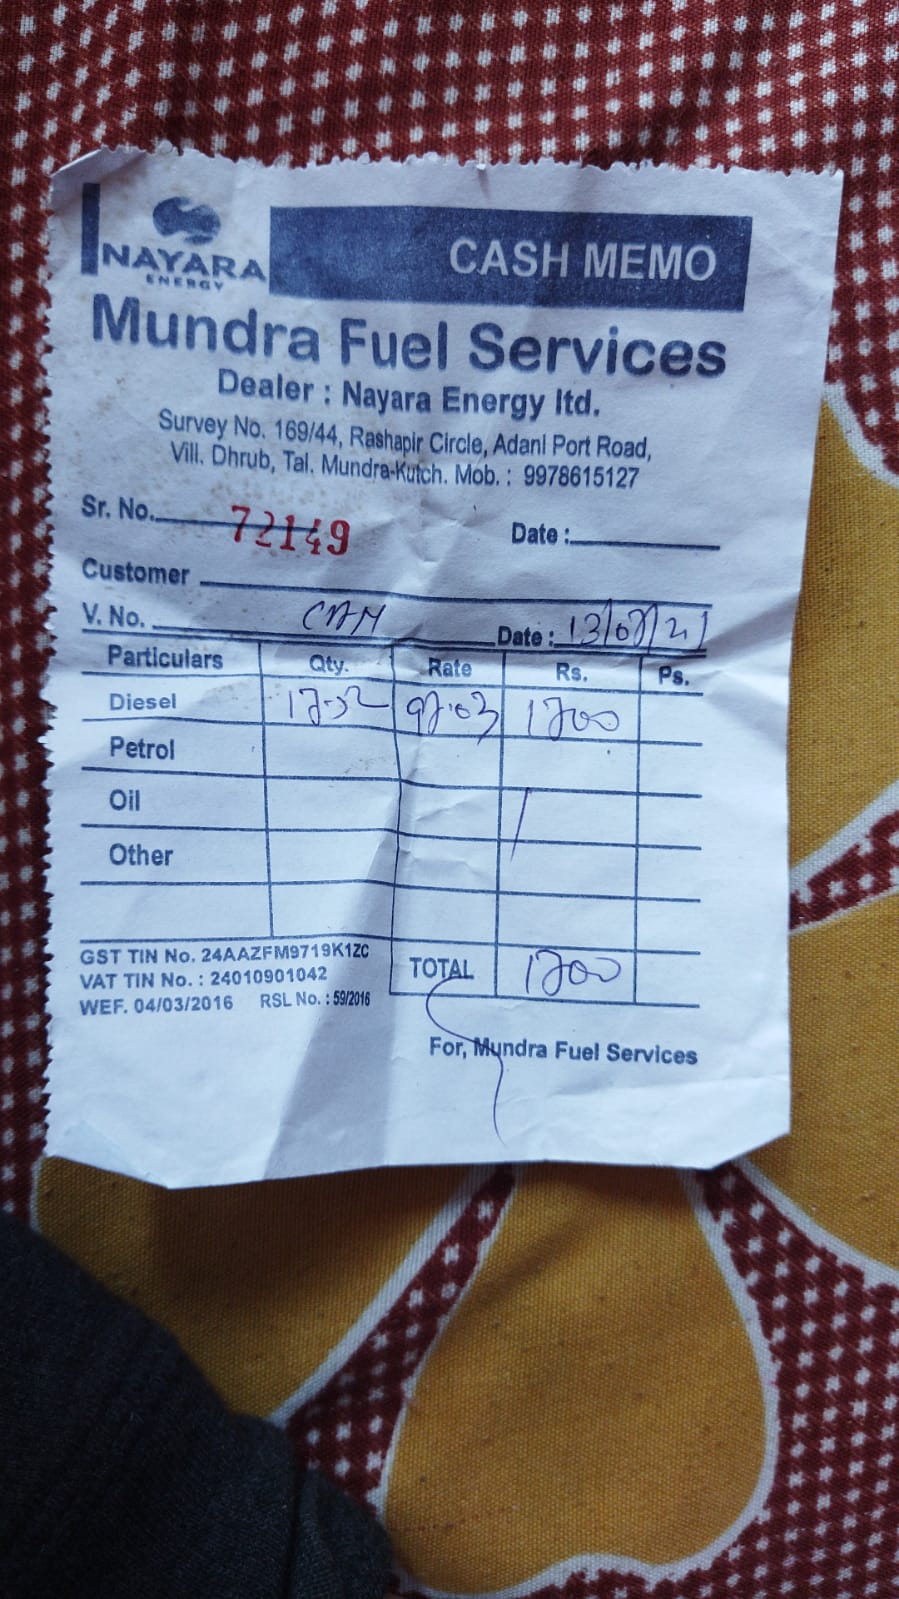 NAYARA
ENERGY
CASH MEMO
Mundra Fuel Services
Dealer : Nayara Energy ltd.
Survey No. 169/44, Rashapir Circle, Adani Port Road,
Vill. Dhrub, Tal. Mundra-Kutch. Mob. : 9978615127
Sr. No. 72149 Date :
Customer
V. No. Date : 13/07/21
Particulars Qty. Rate Rs. Ps.
Diesel 17.52 97.03 1700
Petrol
Oil
Other
GST TIN No. 24AAZFM9719K1ZC
VAT TIN No. : 24010901042
WEF. 04/03/2016 RSL No. : 59/2016
TOTAL 1700
For, Mundra Fuel Services